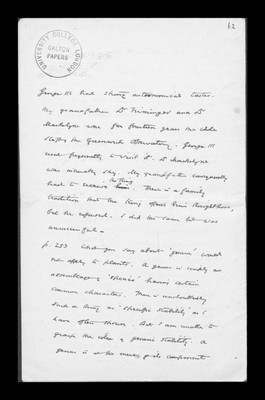 62
UNIVERSITY COLLEGE LONDON
GALTON
PAPERS
George III had strong astronomical tastes.
My grandfather Dr and Dr
Maskelyne were for fourteen years the whole
staff of the Greenwich Observatory. George III
used frequently to visit it. Dr Maskelyne
was intensely shy. My grandfather consequently
had to receive
the King
There is a family
tradition that the King offered him Knighthood,
but he refused. I did
p. 253 Changes say about 'genus' would
not apply to plants. A genus is simply an
assemblage of 'species' having certain
common characters. There is undoubtedly
such a thing as 'specific stability' as I
have often shown. But I am unable to
grasp the idea of generic stability. A
genus is